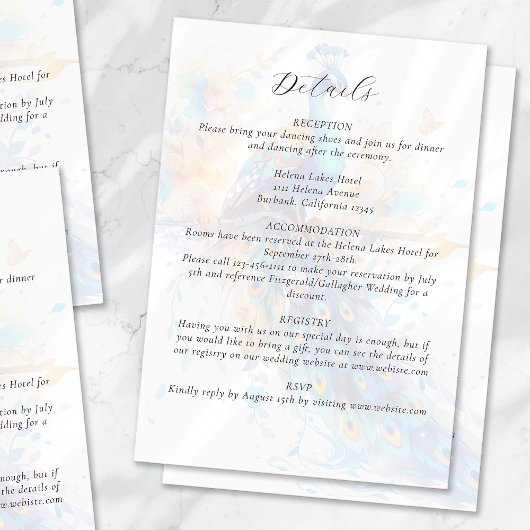 Details
RECEPTION
Please bring your dancing shoes and join us for dinner
and dancing after the ceremony.
Helena Lakes Hotel
1111 Helena Avenue
Burbank, California 12345
ACCOMMODATION
Rooms have been reserved at the Helena Lakes Hotel for
September 27th-28th.
Please call 123-456-1111 to make your reservation by July
5th and reference Fitzgerald/Gallagher Wedding for a
discount.
REGISTRY
Having you with us on our special day is enough, but if
you would like to bring a gift, you can see the details of
our registry on our wedding website at www.webiste.com
RSVP
Kindly reply by August 15th by visiting www.website.com
Lakes Hotel for
rvation by July
Wedding for a
dinner
Lakes Hotel for
rvation by July
Wedding for a
enough, but if
the details of
www.webiste.com